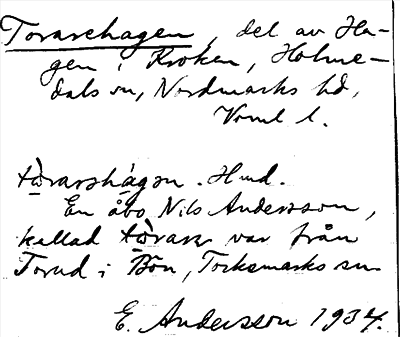 Torarehagen, del av Ha-
gen i Kroken, Holme-
dals sn, Nordmarks hd,
Vrml l.
tòrarshàgən. Hmd.
En åbo, Nils Andersson,
kallad tòrarn var från
Torud i Bön, Torksmarks sn
E. Andersson 1934.